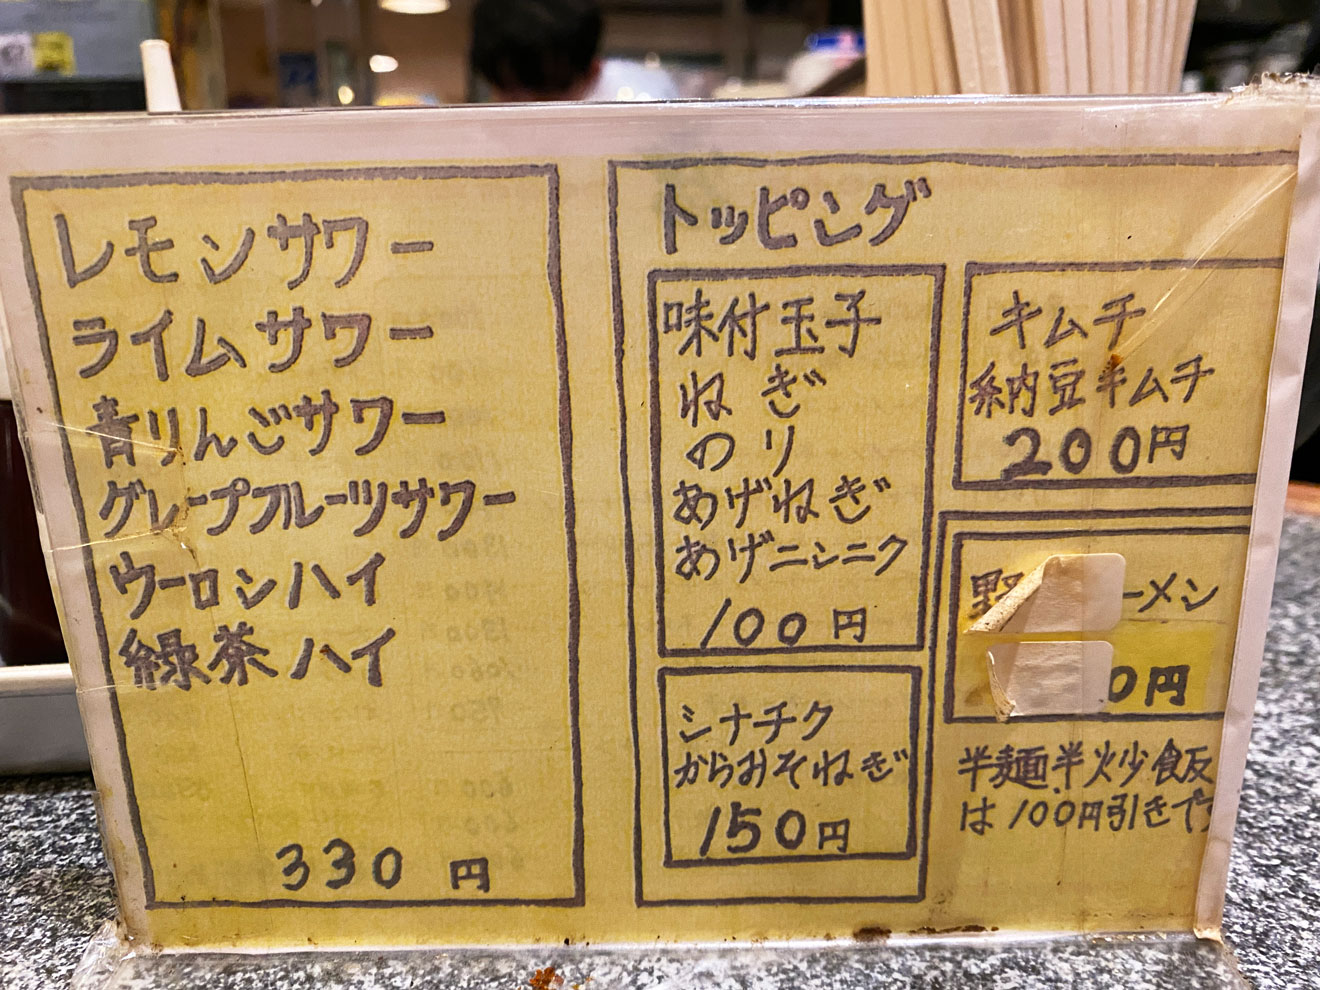 レモンサワー
ライムサワー
青りんごサワー
グレープフルーツサワー
ウーロンハイ
緑茶ハイ
330円
トッピング
味付玉子
ねぎ
のり
あげねぎ
あげニンニク
100円
シナチク
からみそねぎ
150円
キムチ
納豆キムチ
200円
野 ーメン
0円
半麺半炒飯
は100円引きです